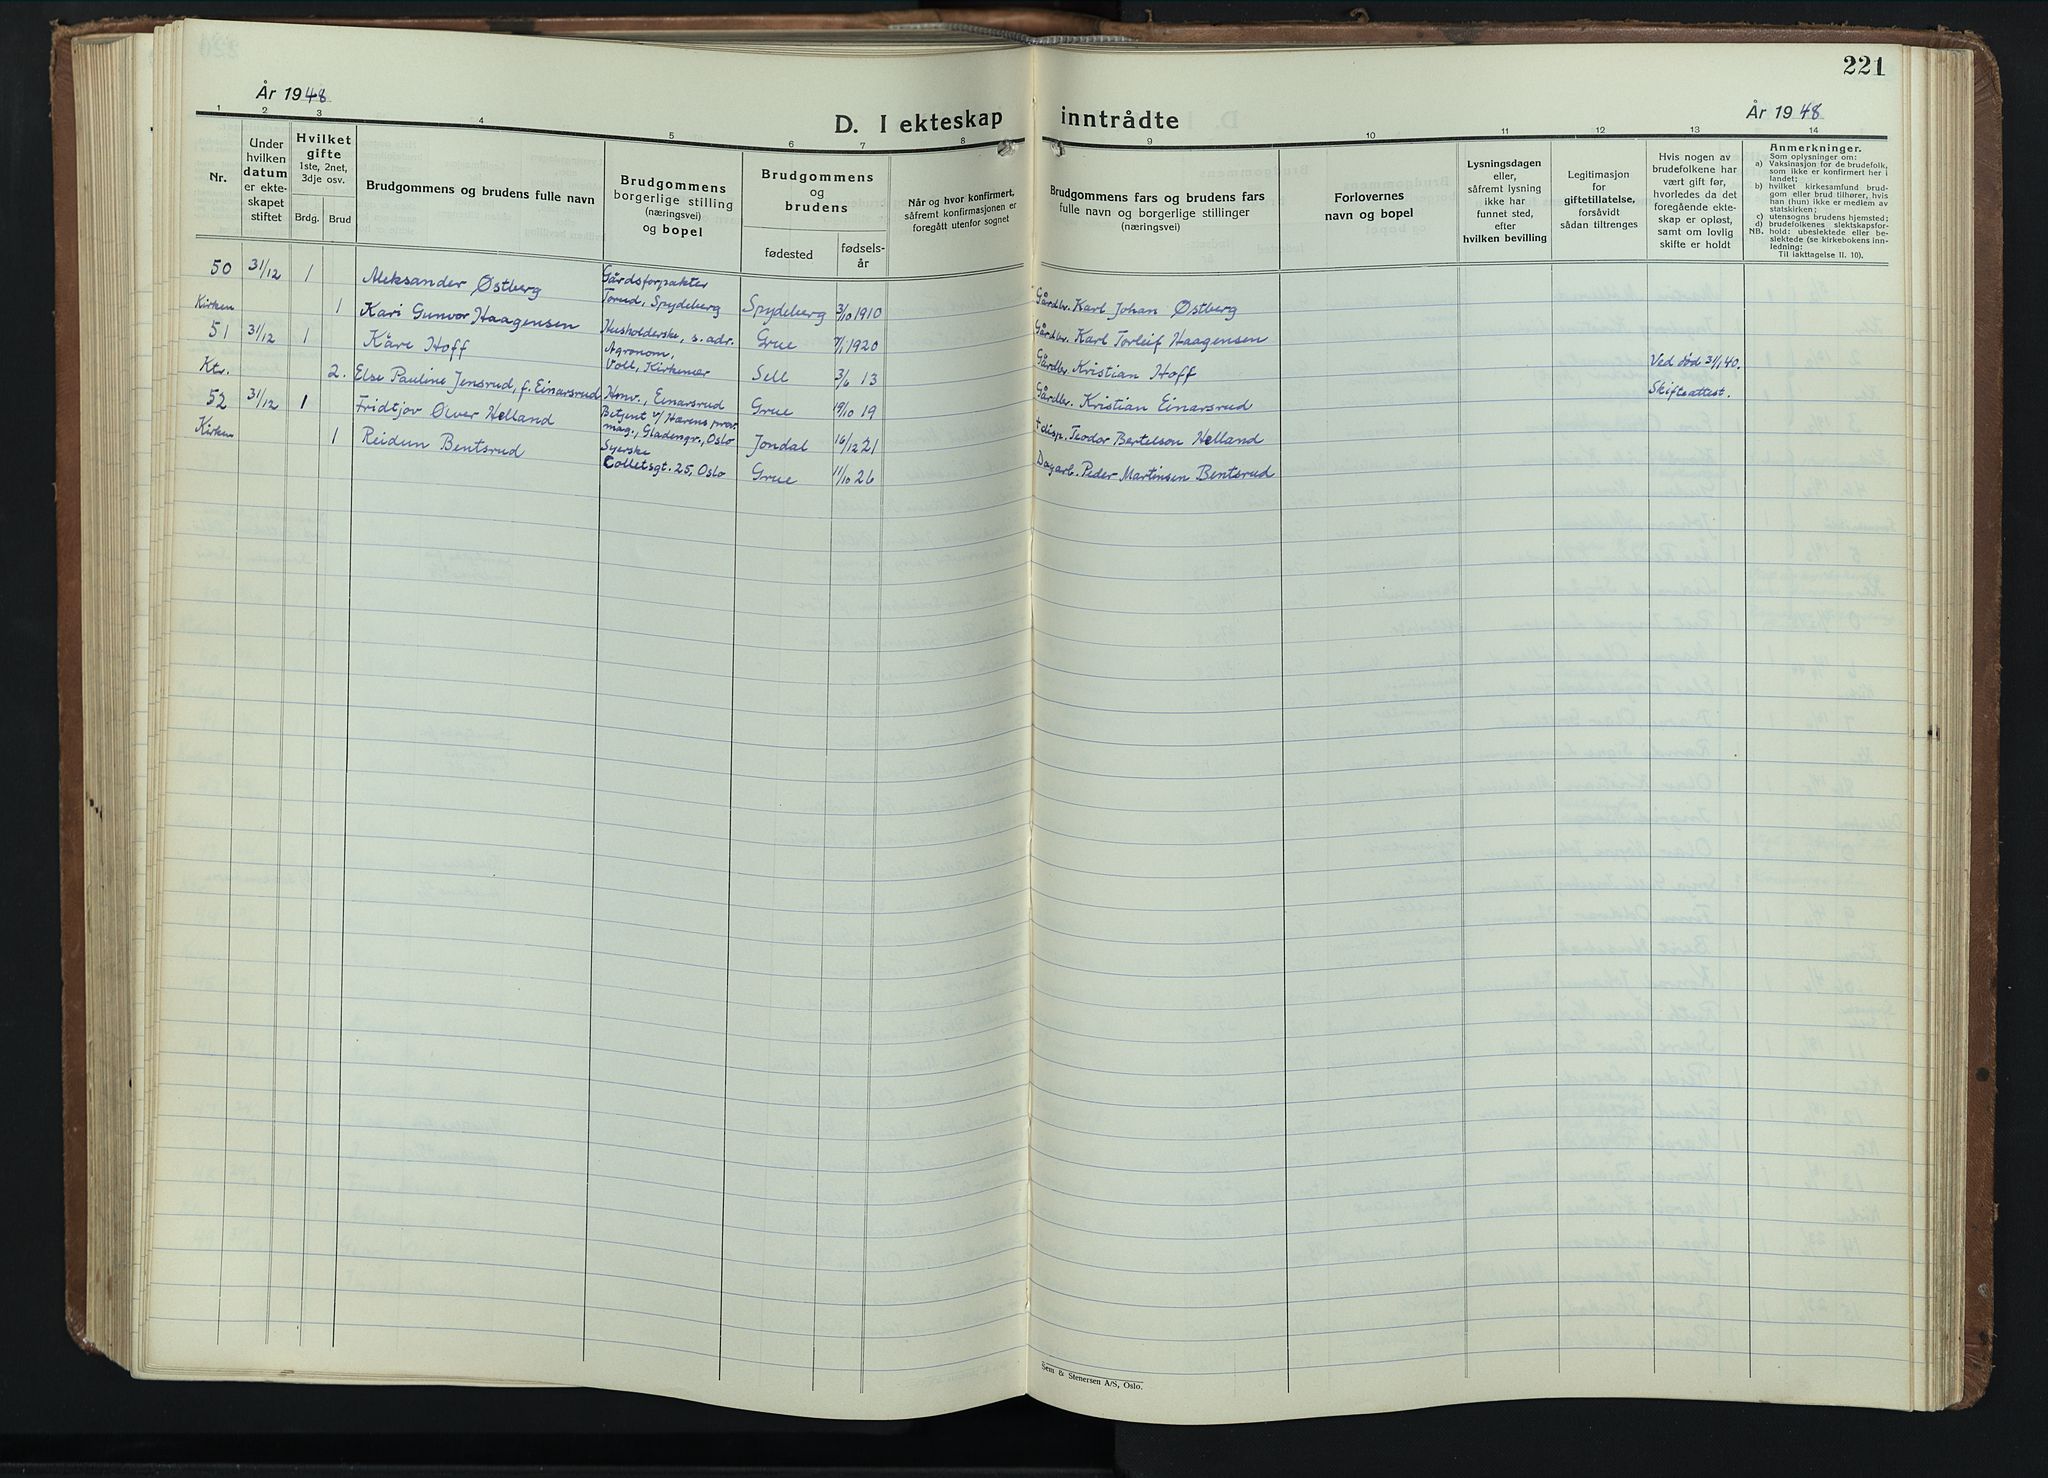 221
År 1948
År 1948
D. I ekteskap inntrådte
1 2 3 4 5 6 7 8 9 10 11 12 13 14
Nr.
Under hvilken datum er ekteskapet stiftet
Under
hvilken
datum
er ekte-
skapet
stiftet
Hvilket
gifte
1ste, 2net,
3dje osv.
Brdg.
Brud
Brudgommens og brudens fulle navn
Brudgommens
borgerlige stilling
(næringsvei)
og bopel
Brudgommens
og
brudens
fødested
fødsels-
år
Når og hvor konfirmert,
såfremt konfirmasjonen er
foregått utenfor sognet
Brudgommens fars og brudens fars
fulle navn og borgerlige stillinger
(næringsvei)
Forlovernes
navn og bopel
Lysningsdagen
eller,
såfremt lysning
ikke har
funnet sted,
efter
hvilken bevilling
Legitimasjon
for
giftetillatelse,
forsåvidt
sådan tiltrenges
Hvis nogen av
brudefolkene har
vært gift før,
hvorledes da det
foregående ekte-
skap er opløst,
samt om lovlig
skifte er holdt
Anmerkninger.
Som oplysninger om:
a) Vaksinasjon for de brudefolk,
som ikke er konfirmert her i
landet;
b) hvilket kirkesamfund brud-
gom eller brud tilhører, hvis
han (hun) ikke er medlem av
statskirken;
c) utensogns brudens hjemsted;
d) brudefolkenes slektskapsfor-
hold: ubeslektede eller be-
slektede (se kirkebokens inn-
ledning:
NB.
Til iakttagelse II. 10).
50 31/12 1 Aleksander Østberg Gårdsforpakter
Torud, Spydeberg Spydeberg 3/10 1910 Gårdbr. Karl Johan Østberg
Kirken 1 Kari Gunvor Haagensen Husholderske, s. adr. Grue 7/1 1920 Gårdbr. Karl Torleif Haagensen
51 31/12 1 Kåre Hoff Agronom,
Voll, Kirkenær Sell 3/6 13 Gårdbr. Kristian Hoff Ved død 31/1 40.
Ktr. 2. Else Pauline Jensrud, f. Einarsrud Hmv., Einarsrud Grue 19/10 19 Gårdbr. Kristian Einarsrud Skifteattest.
52 31/12 1 Fridtjov Ølver Helland Betjent v/ Hærens prov.
mag., Gladengr., Oslo Jondal 16/12 21 + disp. Teodor Bertelson Helland
Kirken 1 Reidun Bentsrud Syerske
Colletsgt. 25, Oslo Grue 11/10 26 Dagarb. Peder Martinsen Bentsrud
Sem & Stenersen A/S, Oslo.